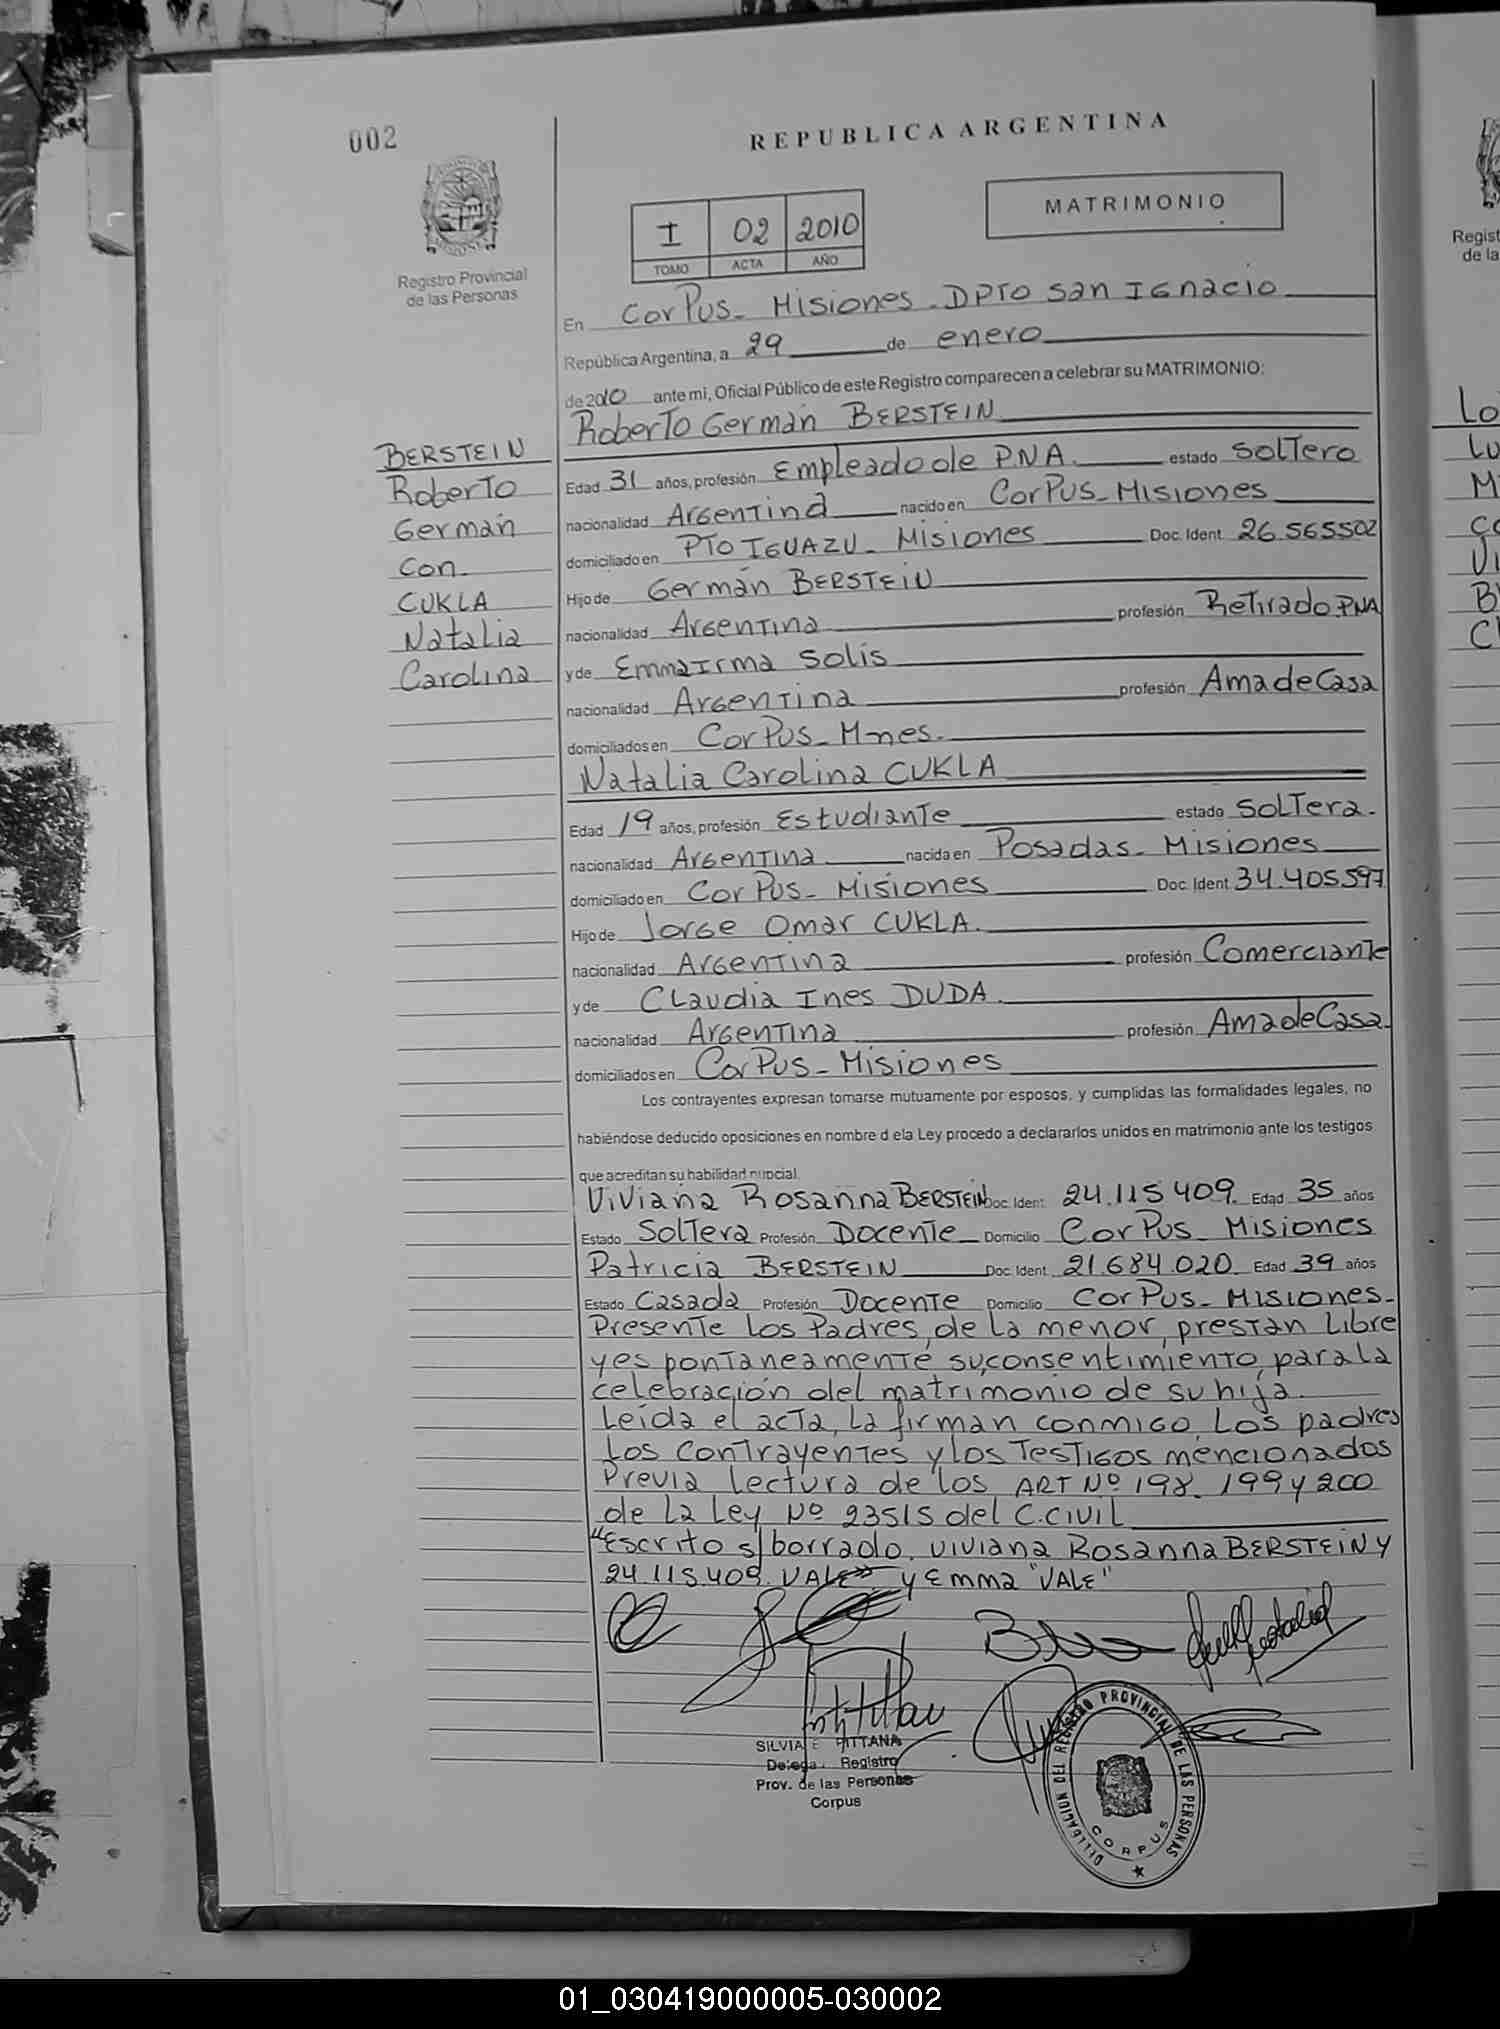 002
REPUBLICA ARGENTINA
Registro Provincial
de las Personas
I 02 2010
TOMO ACTA AÑO
MATRIMONIO
En Corpus - Misiones - DPTO San Ignacio
República Argentina, a 29 de enero
de 2010 ante mi, Oficial Público de este Registro comparecen a celebrar su MATRIMONIO:
Roberto Germán BERSTEIN
BERSTEIN
Roberto
Germán
Con
CUKLA
Natalia
Carolina
Edad 31 años, profesión Empleado de P.N.A. estado Soltero
nacionalidad Argentina nacido en Corpus - Misiones
domiciliado en PTO IGUAZU - Misiones Doc. Ident. 26.565502
Hijo de Germán BERSTEIN
nacionalidad Argentina profesión Retirado P.N.A
y de Emma Irma Solis
nacionalidad Argentina profesión Ama de Casa
domiciliados en Corpus - Mnes.
Natalia Carolina CUKLA
Edad 19 años, profesión Estudiante estado Soltera.
nacionalidad Argentina nacida en Posadas - Misiones
domiciliado en Corpus - Misiones Doc. Ident. 34.405597
Hijo de Jorge Omar CUKLA.
nacionalidad Argentina profesión Comerciante
y de Claudia Ines DUDA.
nacionalidad Argentina profesión Ama de Casa.
domiciliados en Corpus - Misiones
Los contrayentes expresan tomarse mutuamente por esposos, y cumplidas las formalidades legales, no
habiéndose deducido oposiciones en nombre d ela Ley procedo a declararlos unidos en matrimonio ante los testigos
que acreditan su habilidad nupcial.
Viviana Rosanna BERSTEIN Doc. Ident. 24.115 409. Edad 35 años
Estado Soltera Profesión Docente Domicilio Corpus - Misiones
Patricia BERSTEIN Doc. Ident. 21.684.020. Edad 39 años
Estado Casada Profesión Docente Domicilio Corpus - Misiones -
Presente los Padres, de la menor, prestan libre
y espontaneamente su consentimiento, para la
celebración del matrimonio de su hija.
Leída el acta, la firman conmigo, los padres
los contrayentes y los testigos mencionados
Previa lectura de los ART Nº 198. 199 y 200
de la Ley Nº 23515 del C. CIVIL
"Escrito s/ borrado. Viviana Rosanna BERSTEIN y
24.115.409. VALE" y Emma "VALE"
SILVIA E PITTANA
Delega. Registro
Prov. de las Personas
Corpus
DELEGACION DEL REGISTRO PROVINCIAL DE LAS PERSONAS
CORPUS
Regist
de la
Lo
Lu
M
Co
Vi
B
C
01_030419000005-030002